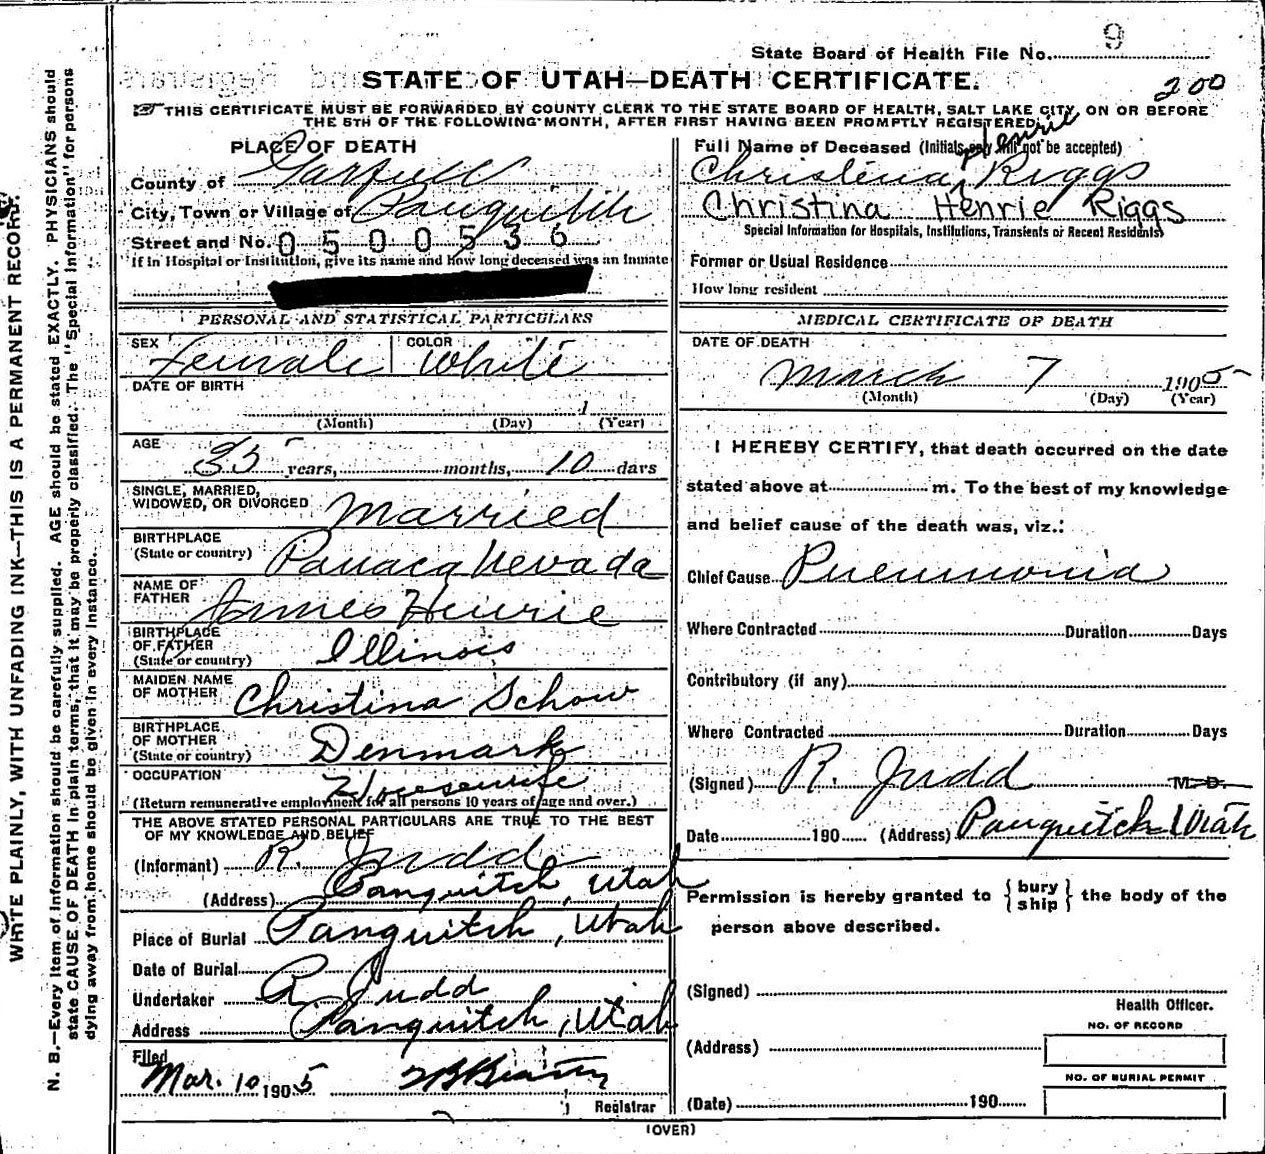 State Board of Health File No. 9
STATE OF UTAH—DEATH CERTIFICATE.
200
THIS CERTIFICATE MUST BE FORWARDED BY COUNTY CLERK TO THE STATE BOARD OF HEALTH, SALT LAKE CITY, ON OR BEFORE
THE 5TH OF THE FOLLOWING MONTH, AFTER FIRST HAVING BEEN PROMPTLY REGISTERED.
PLACE OF DEATH
County of Garfield
City, Town or Village of Panguitch
Street and No. 0500536
If in Hospital or Institution, give its name and how long deceased was an Inmate
Full Name of Deceased (Initials only will not be accepted)
Henrie
Christina Riggs
Christina Henrie Riggs
Special Information for Hospitals, Institutions, Transients or Recent Residents
Former or Usual Residence
How long resident
PERSONAL AND STATISTICAL PARTICULARS
SEX Female COLOR White
DATE OF BIRTH
1
(Month) (Day) (Year)
AGE
35 years, months, 10 days
SINGLE, MARRIED,
WIDOWED, OR DIVORCED Married
BIRTHPLACE
(State or country) Panaca Nevada
NAME OF
FATHER James Henrie
BIRTHPLACE
OF FATHER
(State or country) Illinois
MAIDEN NAME
OF MOTHER Christina Schow
BIRTHPLACE
OF MOTHER
(State or country) Denmark
OCCUPATION Housewife
(Return remunerative employment for all persons 10 years of age and over.)
THE ABOVE STATED PERSONAL PARTICULARS ARE TRUE TO THE BEST
OF MY KNOWLEDGE AND BELIEF
(Informant) R. Judd
(Address) Panguitch, Utah
Place of Burial Panguitch, Utah
Date of Burial
Undertaker R Judd
Address Panguitch, Utah
Filed
Mar. 10 1905
Registrar
MEDICAL CERTIFICATE OF DEATH
DATE OF DEATH
March 7 1905
(Month) (Day) (Year)
I HEREBY CERTIFY, that death occurred on the date
stated above at m. To the best of my knowledge
and belief cause of the death was, viz.:
Chief Cause Pneumonia
Where Contracted Duration Days
Contributory (if any)
Where Contracted Duration Days
(Signed) R. Judd M. D.
Date 190 (Address) Panguitch Utah
Permission is hereby granted to {bury
ship} the body of the
person above described.
(Signed)
Health Officer.
NO. OF RECORD
(Address)
NO. OF BURIAL PERMIT
(Date) 190
(OVER)
WRITE PLAINLY, WITH UNFADING INK—THIS IS A PERMANENT RECORD.
N. B.—Every item of information should be carefully supplied. AGE should be stated EXACTLY. PHYSICIANS should
state CAUSE OF DEATH in plain terms, that it may be properly classified. The "Special Information" for persons
dying away from home should be given in every instance.